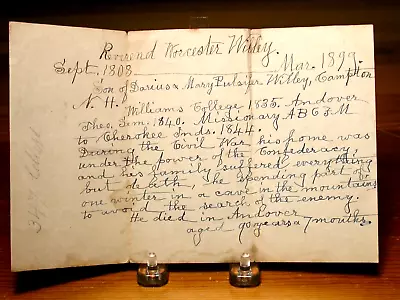 Reverend Worcester Willey.
Sept. 1808. Mar. 1899.
Son of Darius & Mary Pulsifer Willey, Campton
N. H. Williams College 1835. Andover
Theo. Sem. 1840. Missionary A B C F M
to Cherokee Inds. 1844.
During the Civil War his home was
under the power of the Confederacy,
and his family suffered everything
but death, he spending part of
one winter in a cave in the mountains
to avoid the search of the enemy.
He died in Andover
aged 90 years & 7 months.